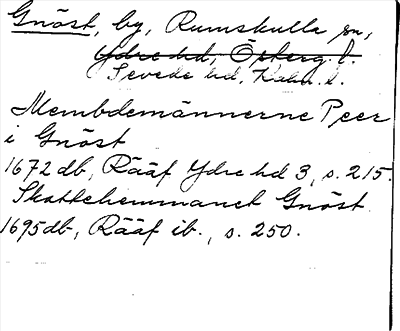 Gnöst, by, Rumskulla sn,
Ydre hd, Östergl. l.
Sevede hd, Kalm. l.
Membdemännerne Peer
i Gnöst
1672 db, Rääf Ydre hd 3, s. 215.
Skattehemmanet Gnöst
1695 db, Rääf ib., s. 250.